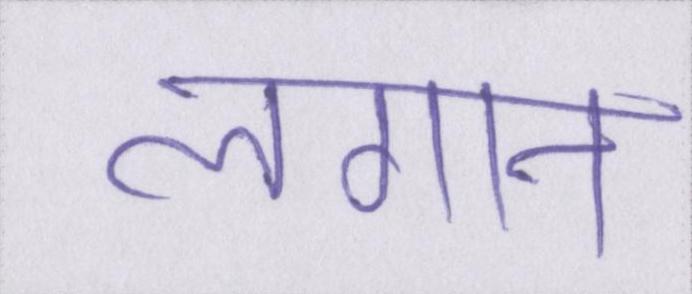 लगान